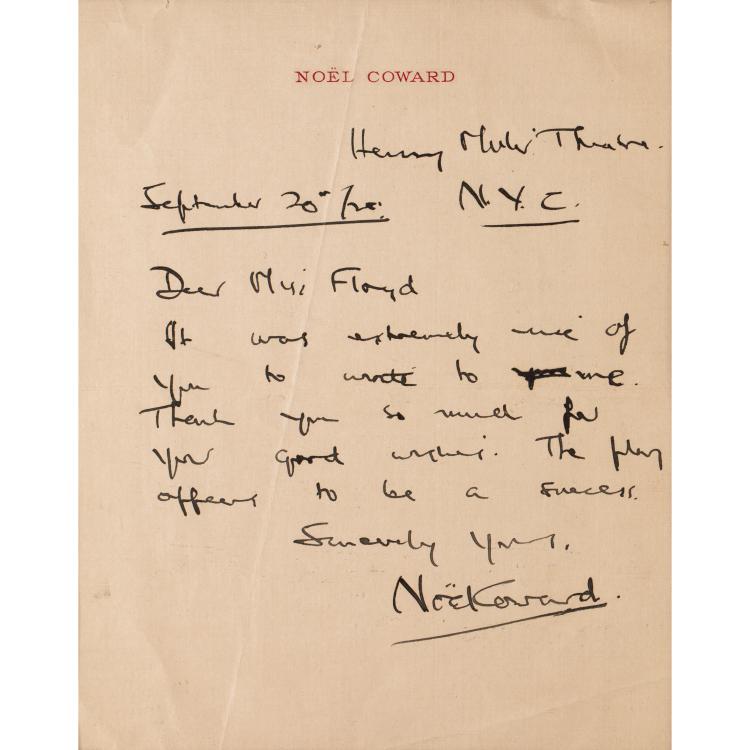 NOËL COWARD
Henry Miller Theatre.
September 20th /25. N.Y.C.
Dear Miss Floyd
It was extremely nice of
you to write to me.
Thank you so much for
your good wishes. The play
appears to be a success.
Sincerely Yours,
Noël Coward.